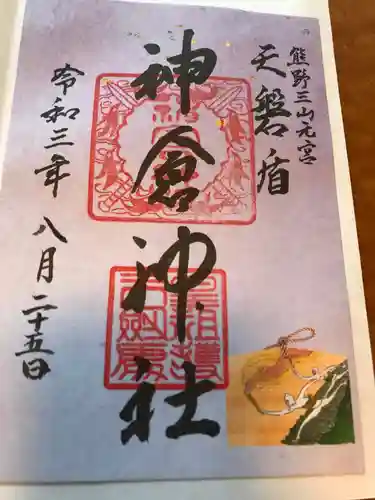 熊野三山元宮
天磐盾
神倉神社
令和三年八月二十五日